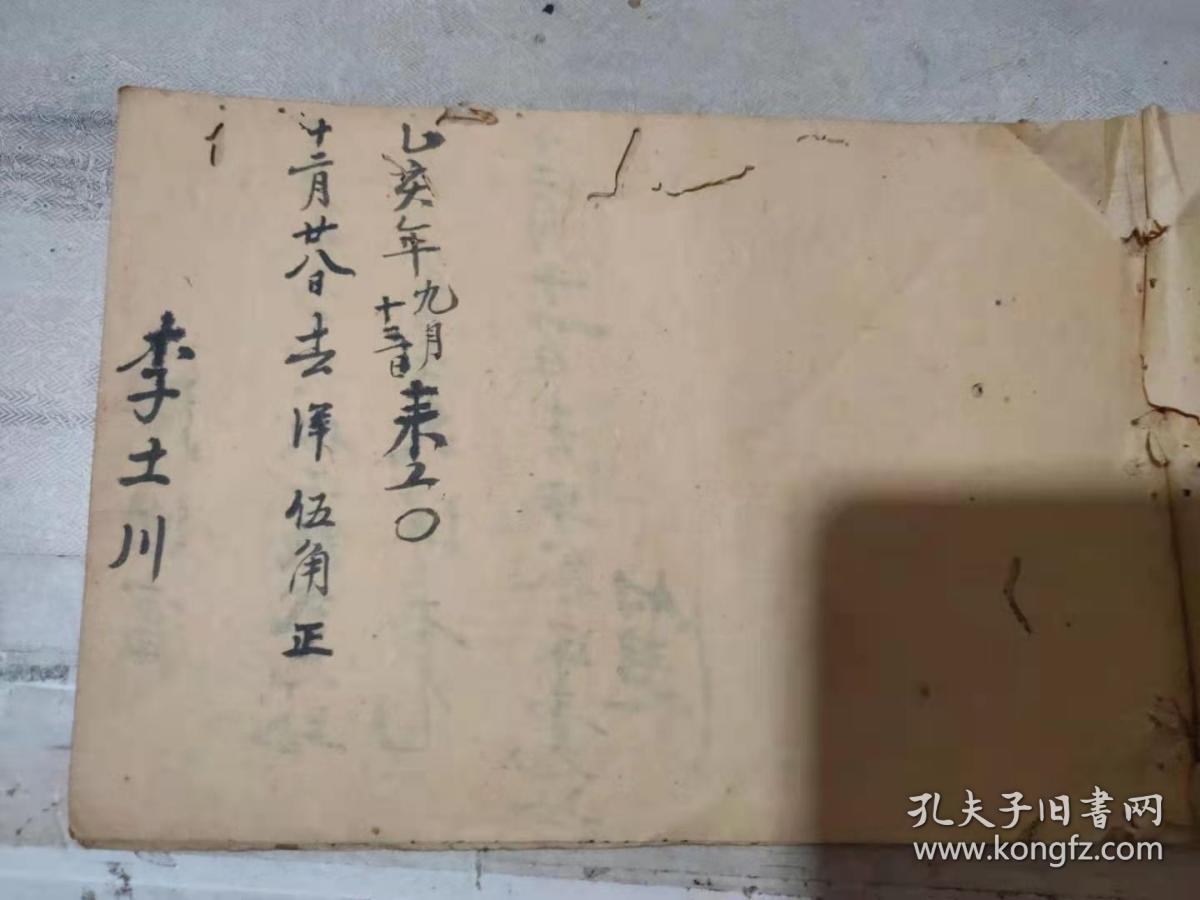 乙亥年九月十三日来工〇
十二月廿八日去洋伍角正
李士川
孔夫子旧書网
www.kongfz.com